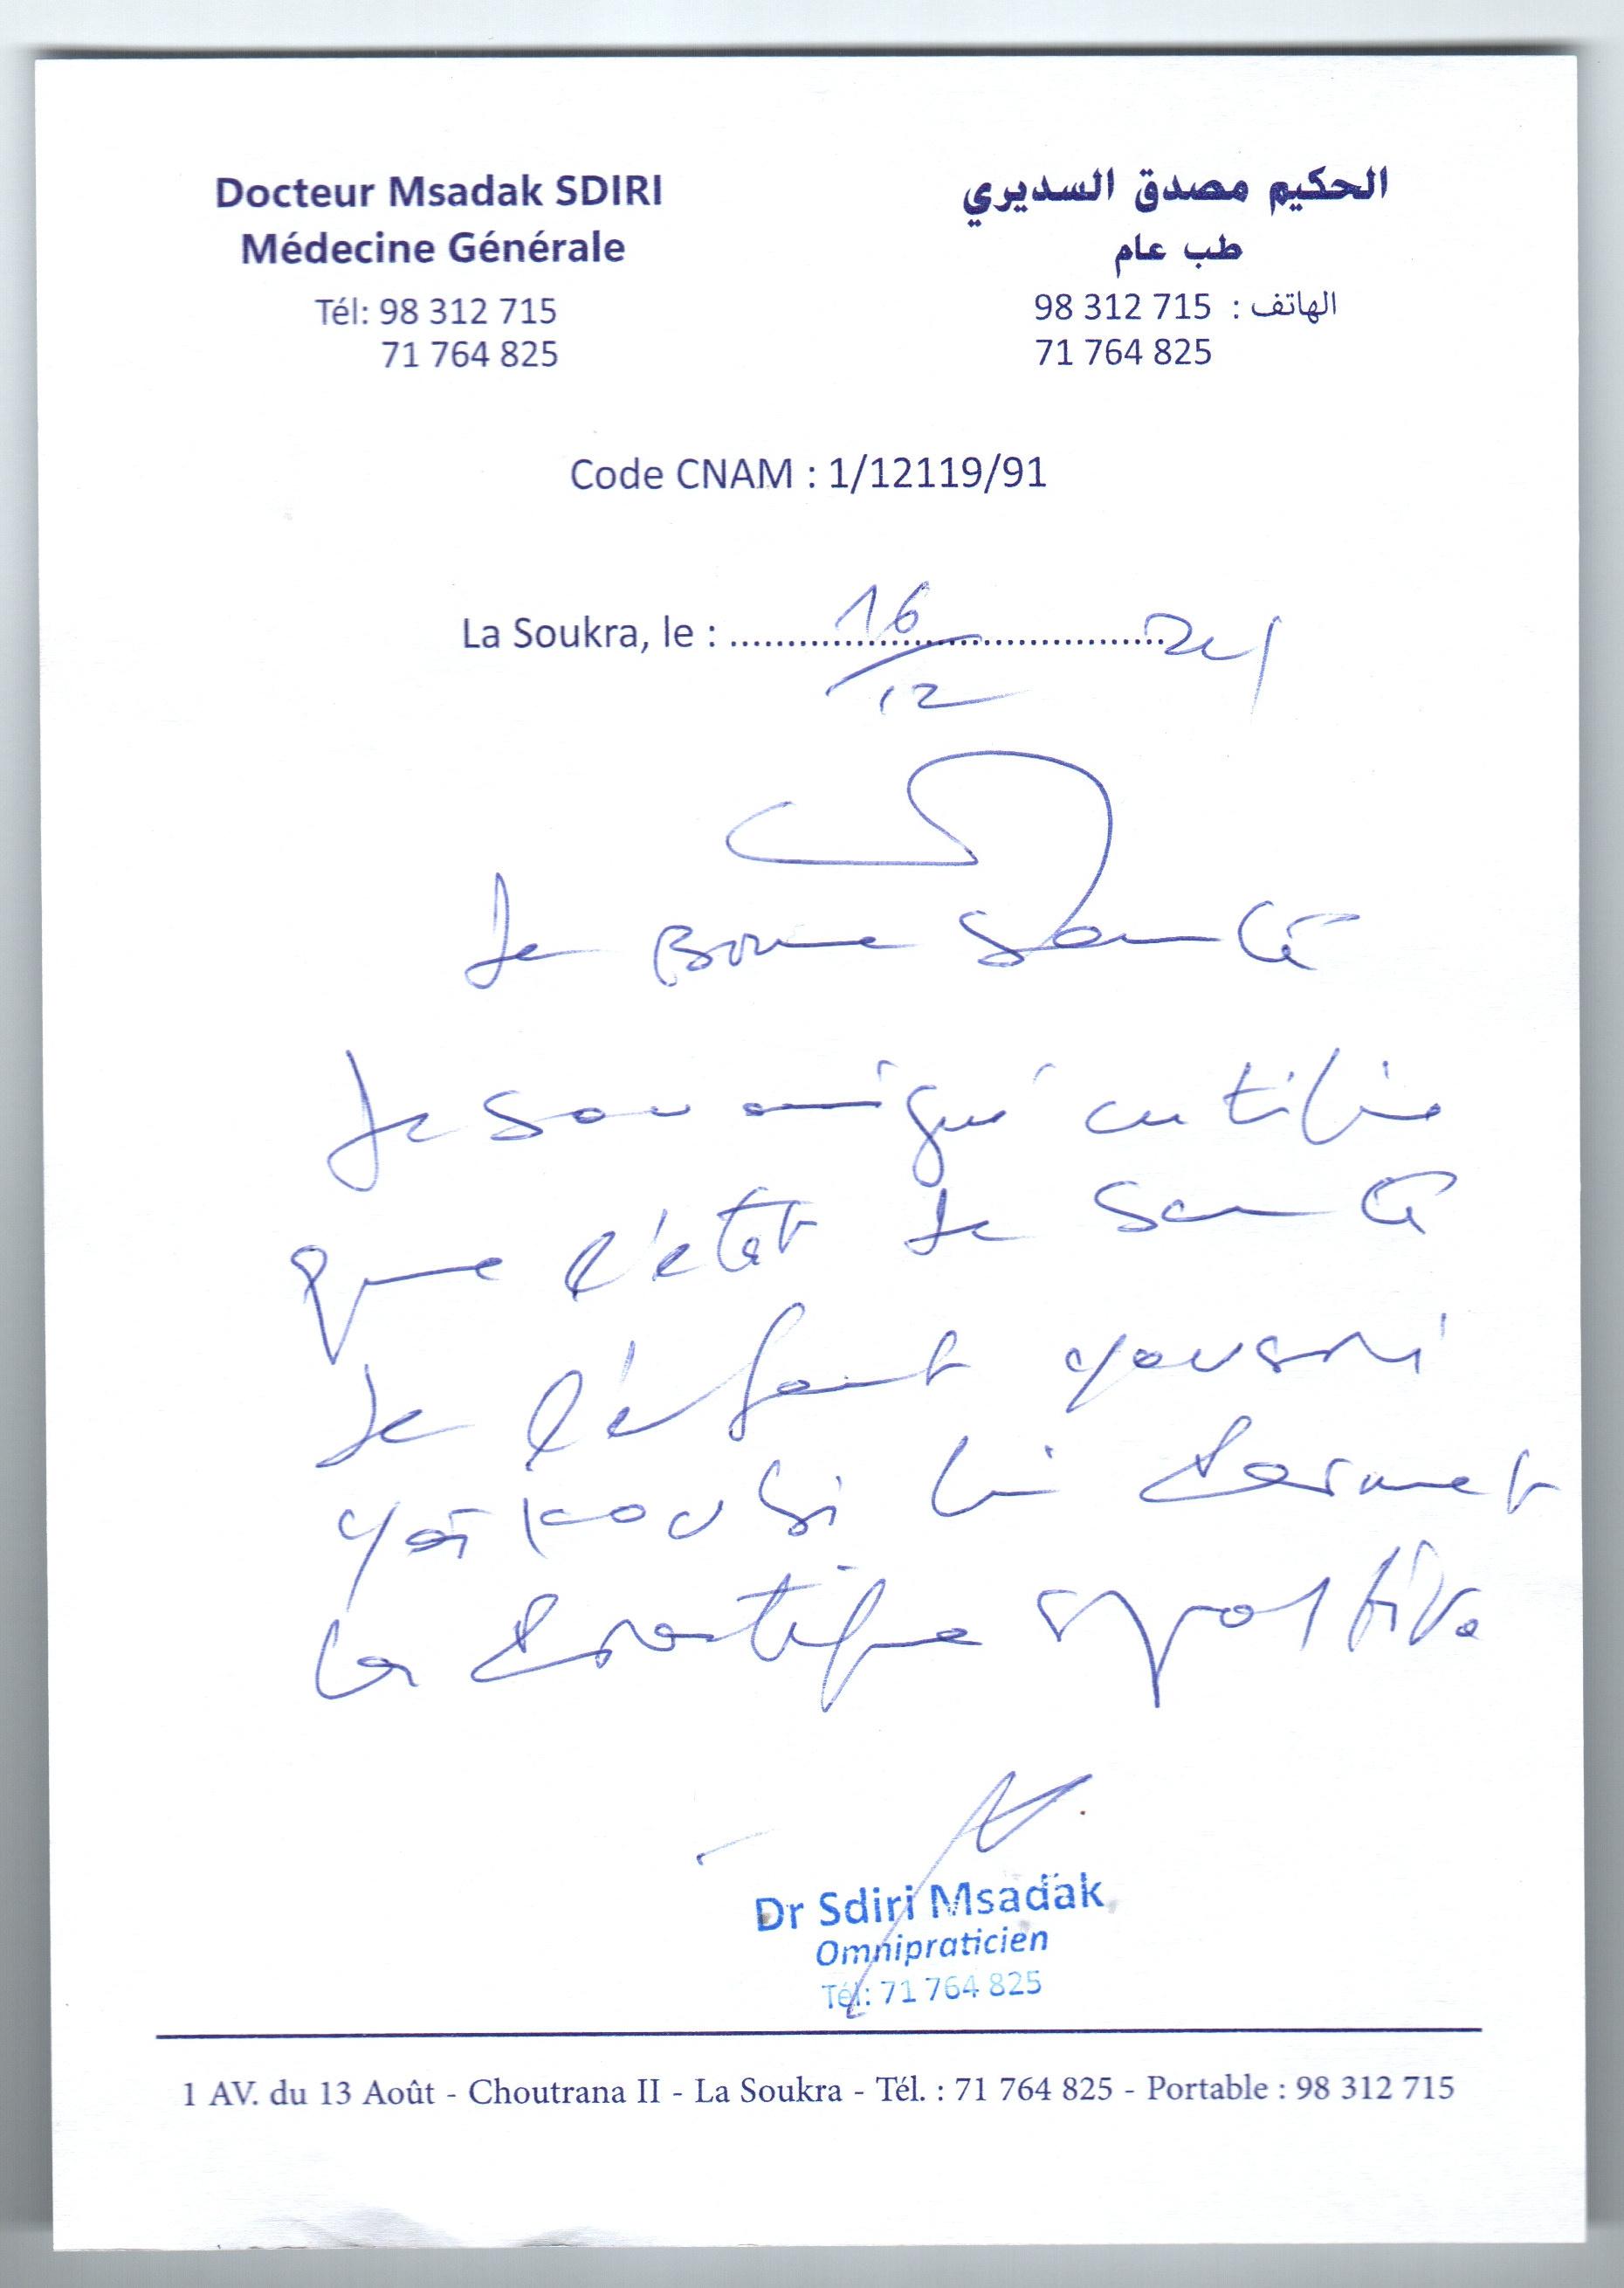 Docteur Msadak SDIRI
Médecine Générale
Tél: 98 312 715
71 764 825
الحكيم مصدق السديري
طب عام
الهاتف : 98 312 715
71 764 825
Code CNAM : 1/12119/91
La Soukra, le : 16/12
de Bonne Santé
Je soussigné certifie
que l'état de santé
de l'enfant
lui permet
la pratique sportive
Dr Sdiri Msadak
Omnipraticien
Tél: 71 764 825
1 AV. du 13 Août - Choutrana II - La Soukra - Tél. : 71 764 825 - Portable : 98 312 715